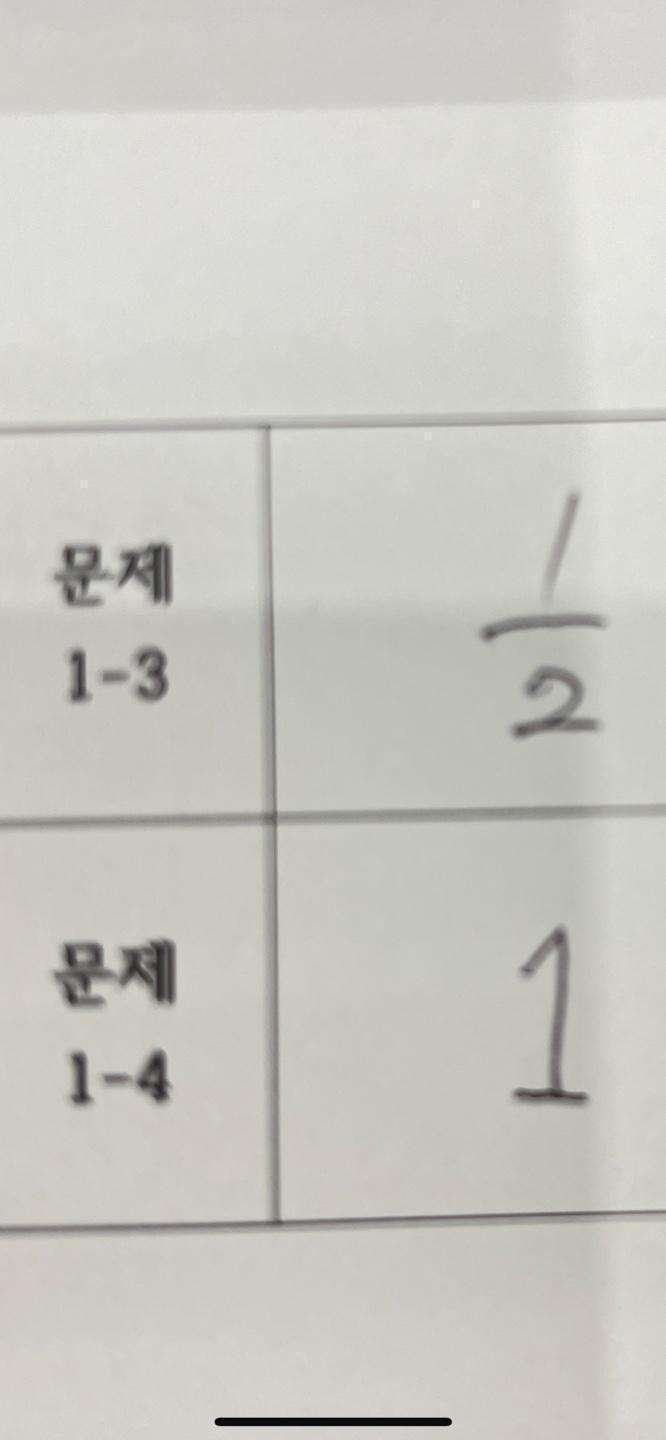 문제
1-3
1/2
문제
1-4
1